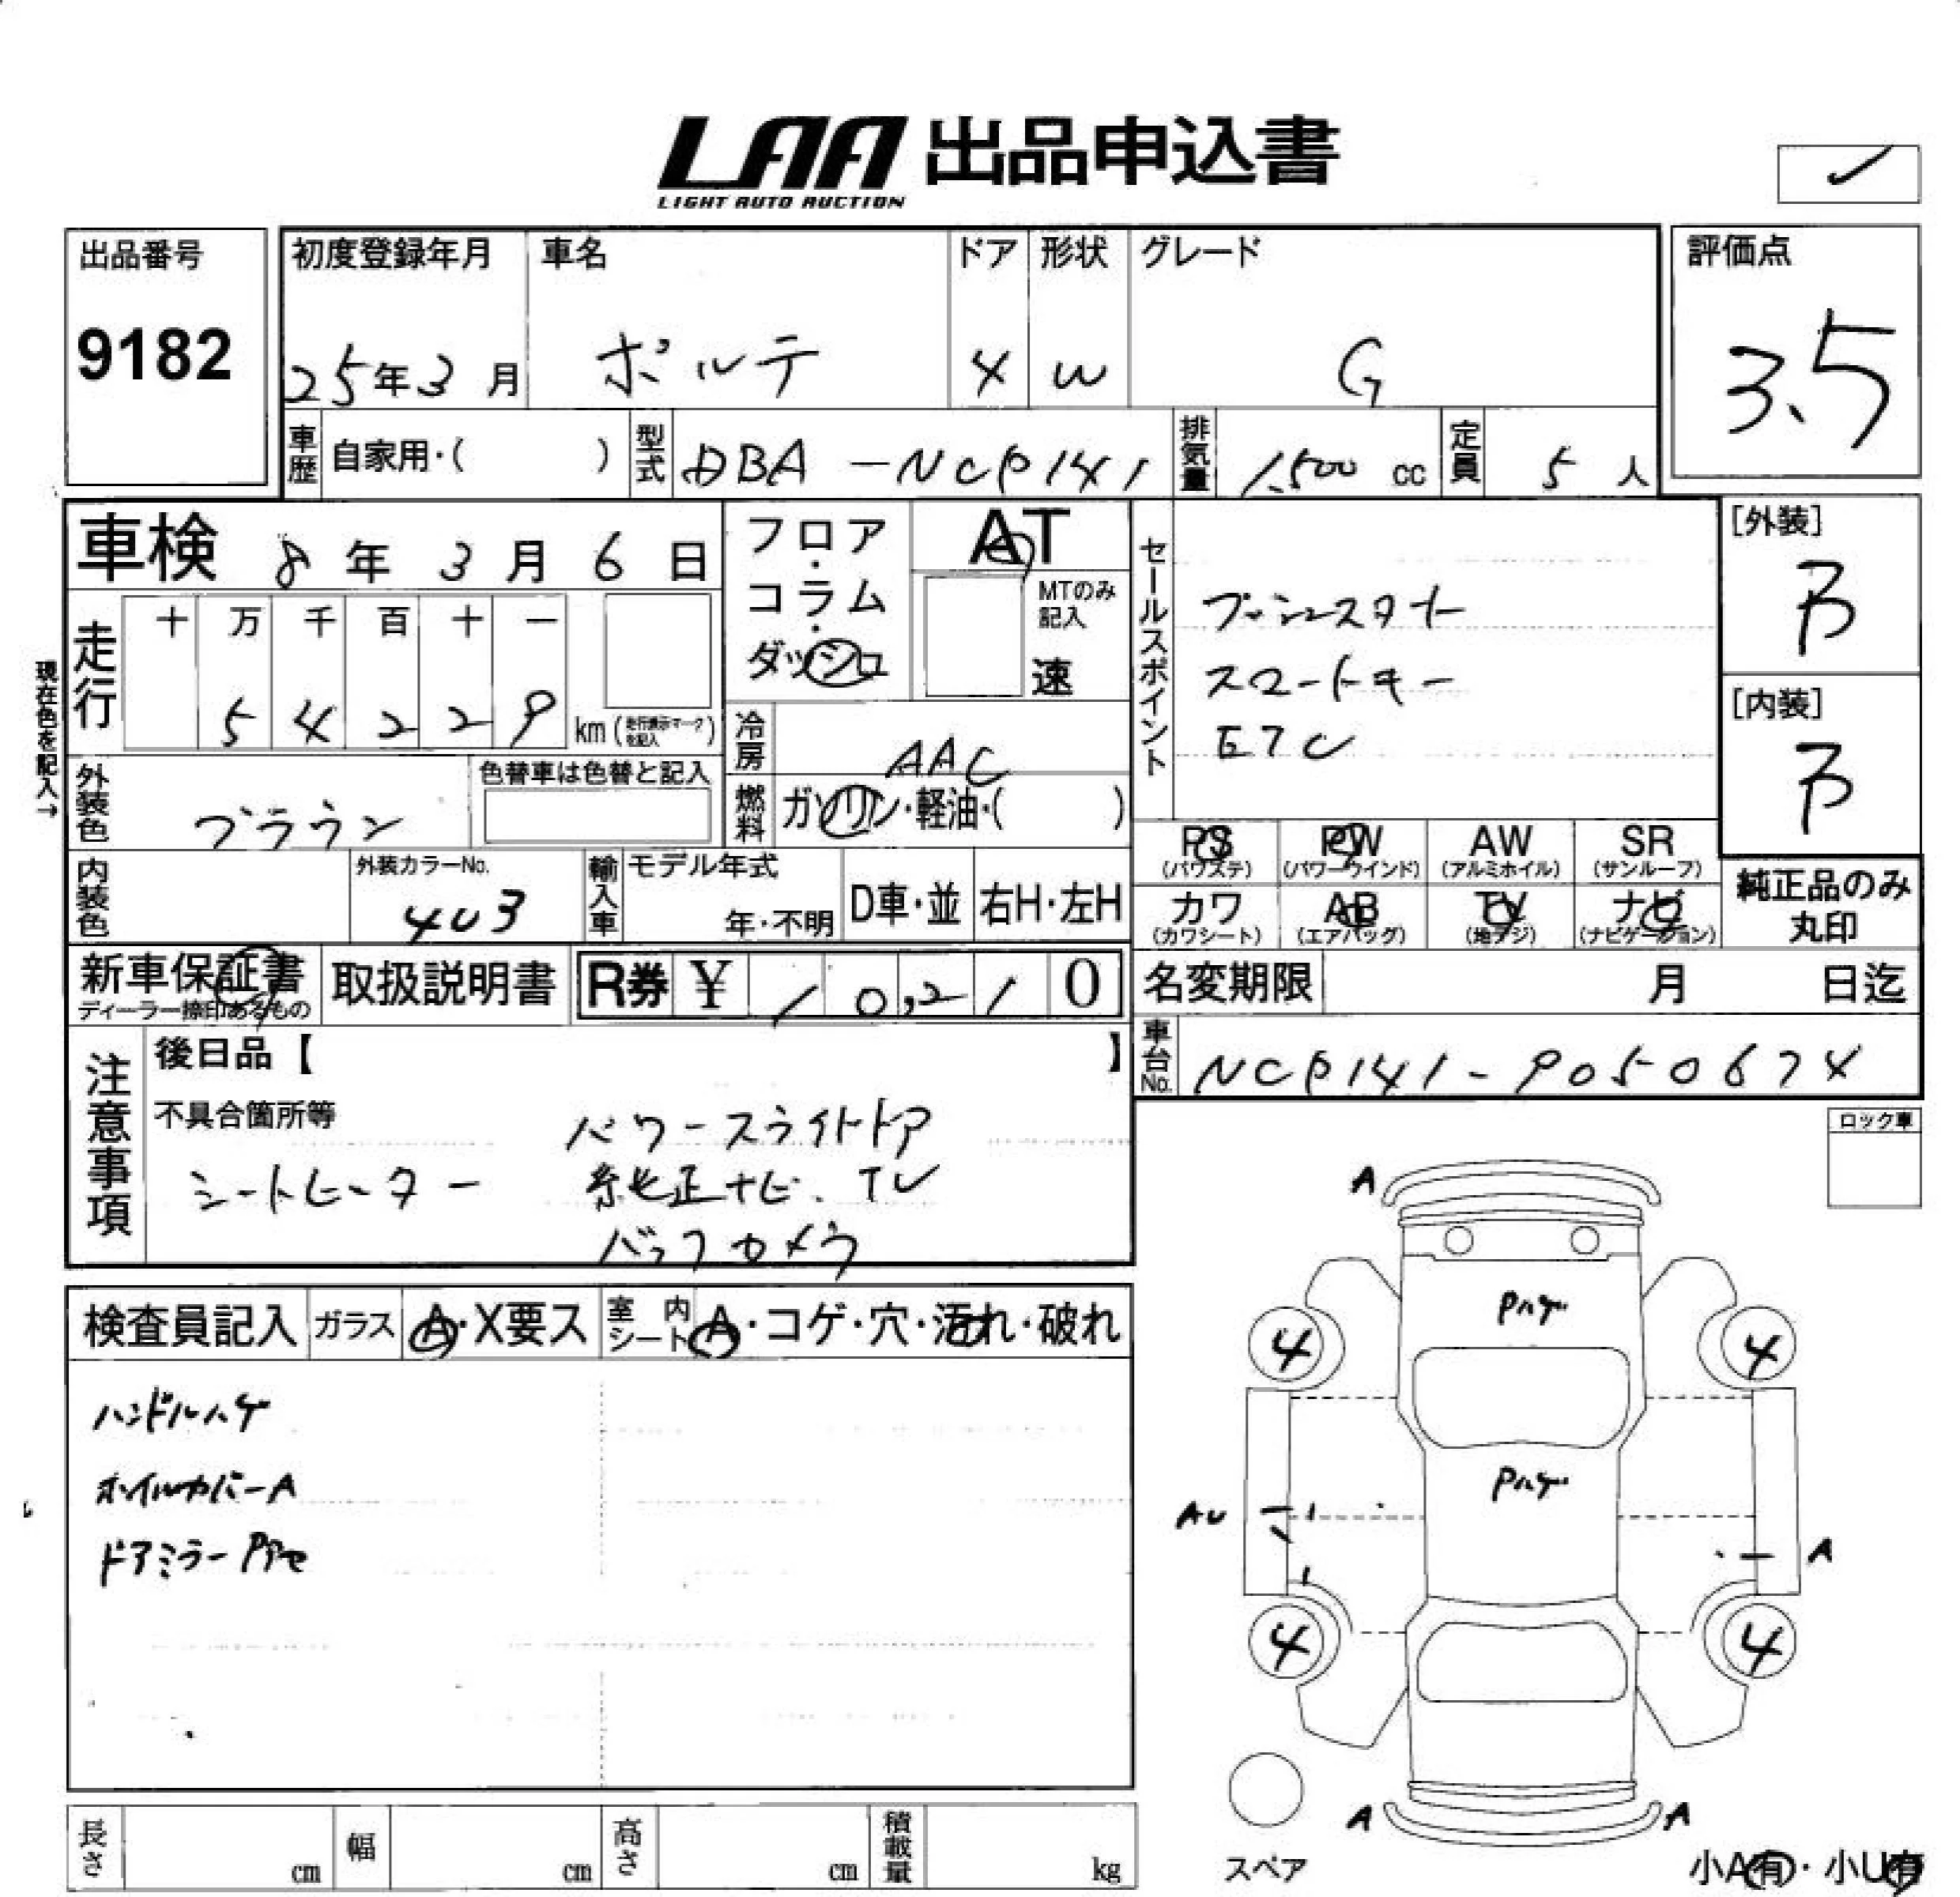 LAA 出品申込書
LIGHT AUTO AUCTION
出品番号
9182
初度登録年月
25年3月
車名
ポルテ
ドア
4
形状
W
グレード
G
評価点
3.5
車歴 自家用・( )
型式 DBA-NCP141
排気量 1,500 cc
定員 5 人
車検 8年3月6日
フロア・コラム・ダッシュ
AT
MTのみ記入
速
セールスポイント
プッシュスタート
スマートキー
ETC
[外装]
B
[内装]
B
現在色を記入→
走行
十 万 千 百 十 一
5 4 2 2 9 km (走行表示マークを記入)
冷房 AAC
外装色 ブラウン
色替車は色替と記入
燃料 ガソリン・軽油・( )
PS (パワステ)
PW (パワーウインド)
AW (アルミホイル)
SR (サンルーフ)
カワ (カワシート)
AB (エアバッグ)
TV (地デジ)
ナビ (ナビゲーション)
純正品のみ丸印
内装色
外装カラーNo.
403
輸入車
モデル年式
年・不明
D車・並
右H・左H
新車保証書
ディーラー捺印あるもの
取扱説明書
R券 ¥ 10,210
名変期限 月 日迄
車台No. NCP141-9050674
注意事項
後日品【 】
不具合箇所等
パワースライドドア
シートヒーター
純正ナビ、TV
バックカメラ
ロック車
検査員記入
ガラス A・X要ス
室内シート A・コゲ・穴・汚れ・破れ
ハンドルハゲ
ホイルカバーA
ドアミラーPアセ
A
Pハゲ
4 4
Pハゲ
AU
A
4 4
A A
スペア
小A有・小U有
長さ cm
幅 cm
高さ cm
積載量 kg